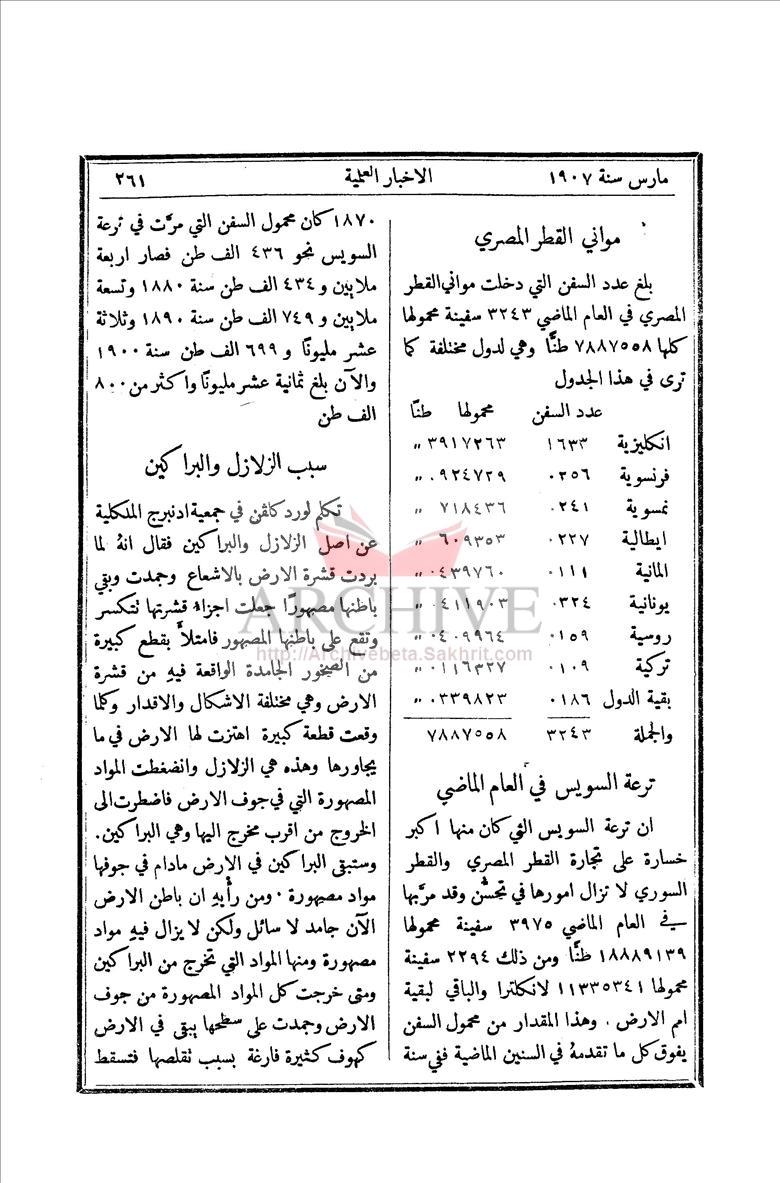 مارس سنة ١٩٠٧ الاخبار العلمية ٢٦١
مواني القطر المصري
بلغ عدد السفن التي دخلت مواني القطر
المصري في العام الماضي ٣٢٤٣ سفينة محمولها
كلها ٧٨٨٧٥٥٨ طنًّا وهي لدول مختلفة كما
ترى في هذا الجدول
عدد السفن محمولها طنًّا
انكليزية ١٦٣٣ ٣٩١٧٢٦٣ "
فرنسوية ٠٢٥٦ ٠٩٢٤٧٢٩ "
نمسوية ٠٢٤١ ٧١٨٤٣٦ "
ايطالية ٠٢٢٧ ٦٠٩٣٥٣ "
المانية ٠١١١ ٠٤٣٩٧٦٠ "
يونانية ٠٣٢٤ ٠٤١١٩٠٣ "
روسية ٠١٥٩ ٠٤٠٩٩٦٤ "
تركية ٠١٠٩ ٠١١٦٣٢٧ "
بقية الدول ٠١٨٦ ٠٣٣٩٨٢٣ "
والجملة ٣٢٤٣ ٧٨٨٧٥٥٨
ترعة السويس في العام الماضي
ان ترعة السويس التي كان منها اكبر
خسارة على تجارة القطر المصري والقطر
السوري لا تزال امورها في تحسُّن وقد مرَّ بها
في العام الماضي ٣٩٧٥ سفينة محمولها
١٨٨٨٩١٣٩ طنًّا ومن ذلك ٢٢٩٤ سفينة
محمولها ١١٣٣٥٣٤١ لانكلترا والباقي لبقية
امم الارض . وهذا المقدار من محمول السفن
يفوق كل ما تقدمهُ في السنين الماضية ففي سنة
١٨٧٠ كان محمول السفن التي مرَّت في ترعة
السويس نحو ٤٣٦ الف طن فصار اربعة
ملايين و ٤٣٤ الف طن سنة ١٨٨٠ وتسعة
ملايين و ٧٤٩ الف طن سنة ١٨٩٠ وثلاثة
عشر مليونًا و ٦٩٩ الف طن سنة ١٩٠٠
والآن بلغ ثمانية عشر مليونًا واكثر من ٨٠٠
الف طن
سبب الزلازل والبراكين
تكلم لورد كلڤن في جمعية ادنبرج الملكية
عن اصل الزلازل والبراكين فقال انهُ لما
بردت قشرة الارض بالاشعاع وجمدت وبقي
باطنها مصهورًا جعلت اجزاء قشرتها تتكسر
وتقع على باطنها المصهور فامتلأ بقطع كبيرة
من الصخور الجامدة الواقعة فيهِ من قشرة
الارض وهي مختلفة الاشكال والاقدار وكلما
وقعت قطعة كبيرة اهتزت لها الارض في ما
يجاورها وهذه هي الزلازل وانضغطت المواد
المصهورة التي في جوف الارض فاضطرت الى
الخروج من اقرب مخرج اليها وهي البراكين .
وستبقى البراكين في الارض مادام في جوفها
مواد مصهورة . ومن رأيهِ ان باطن الارض
الآن جامد لا سائل ولكن لا يزال فيهِ مواد
مصهورة ومنها المواد التي تخرج من البراكين
ومتى خرجت كل المواد المصهورة من جوف
الارض وجمدت على سطحها يبقى في الارض
كهوف كثيرة فارغة بسبب نقلصها فتسقط
ARCHIVE
http://Archivebeta.Sakhrit.com